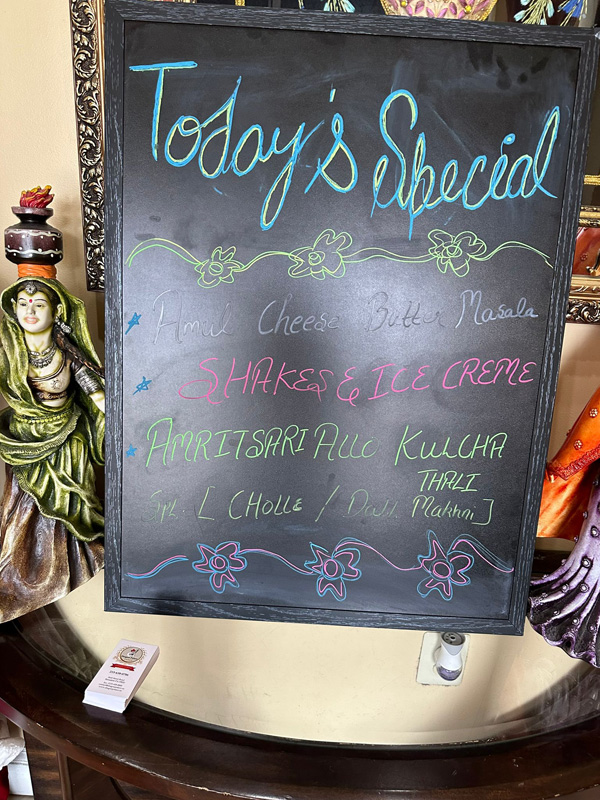 Today's Special
Amul Cheese Butter Masala
SHAKES & ICE CREME
AMRITSARI ALLO KULCHA
THALI
Spl. [ CHOLLE / Dall Makhni ]